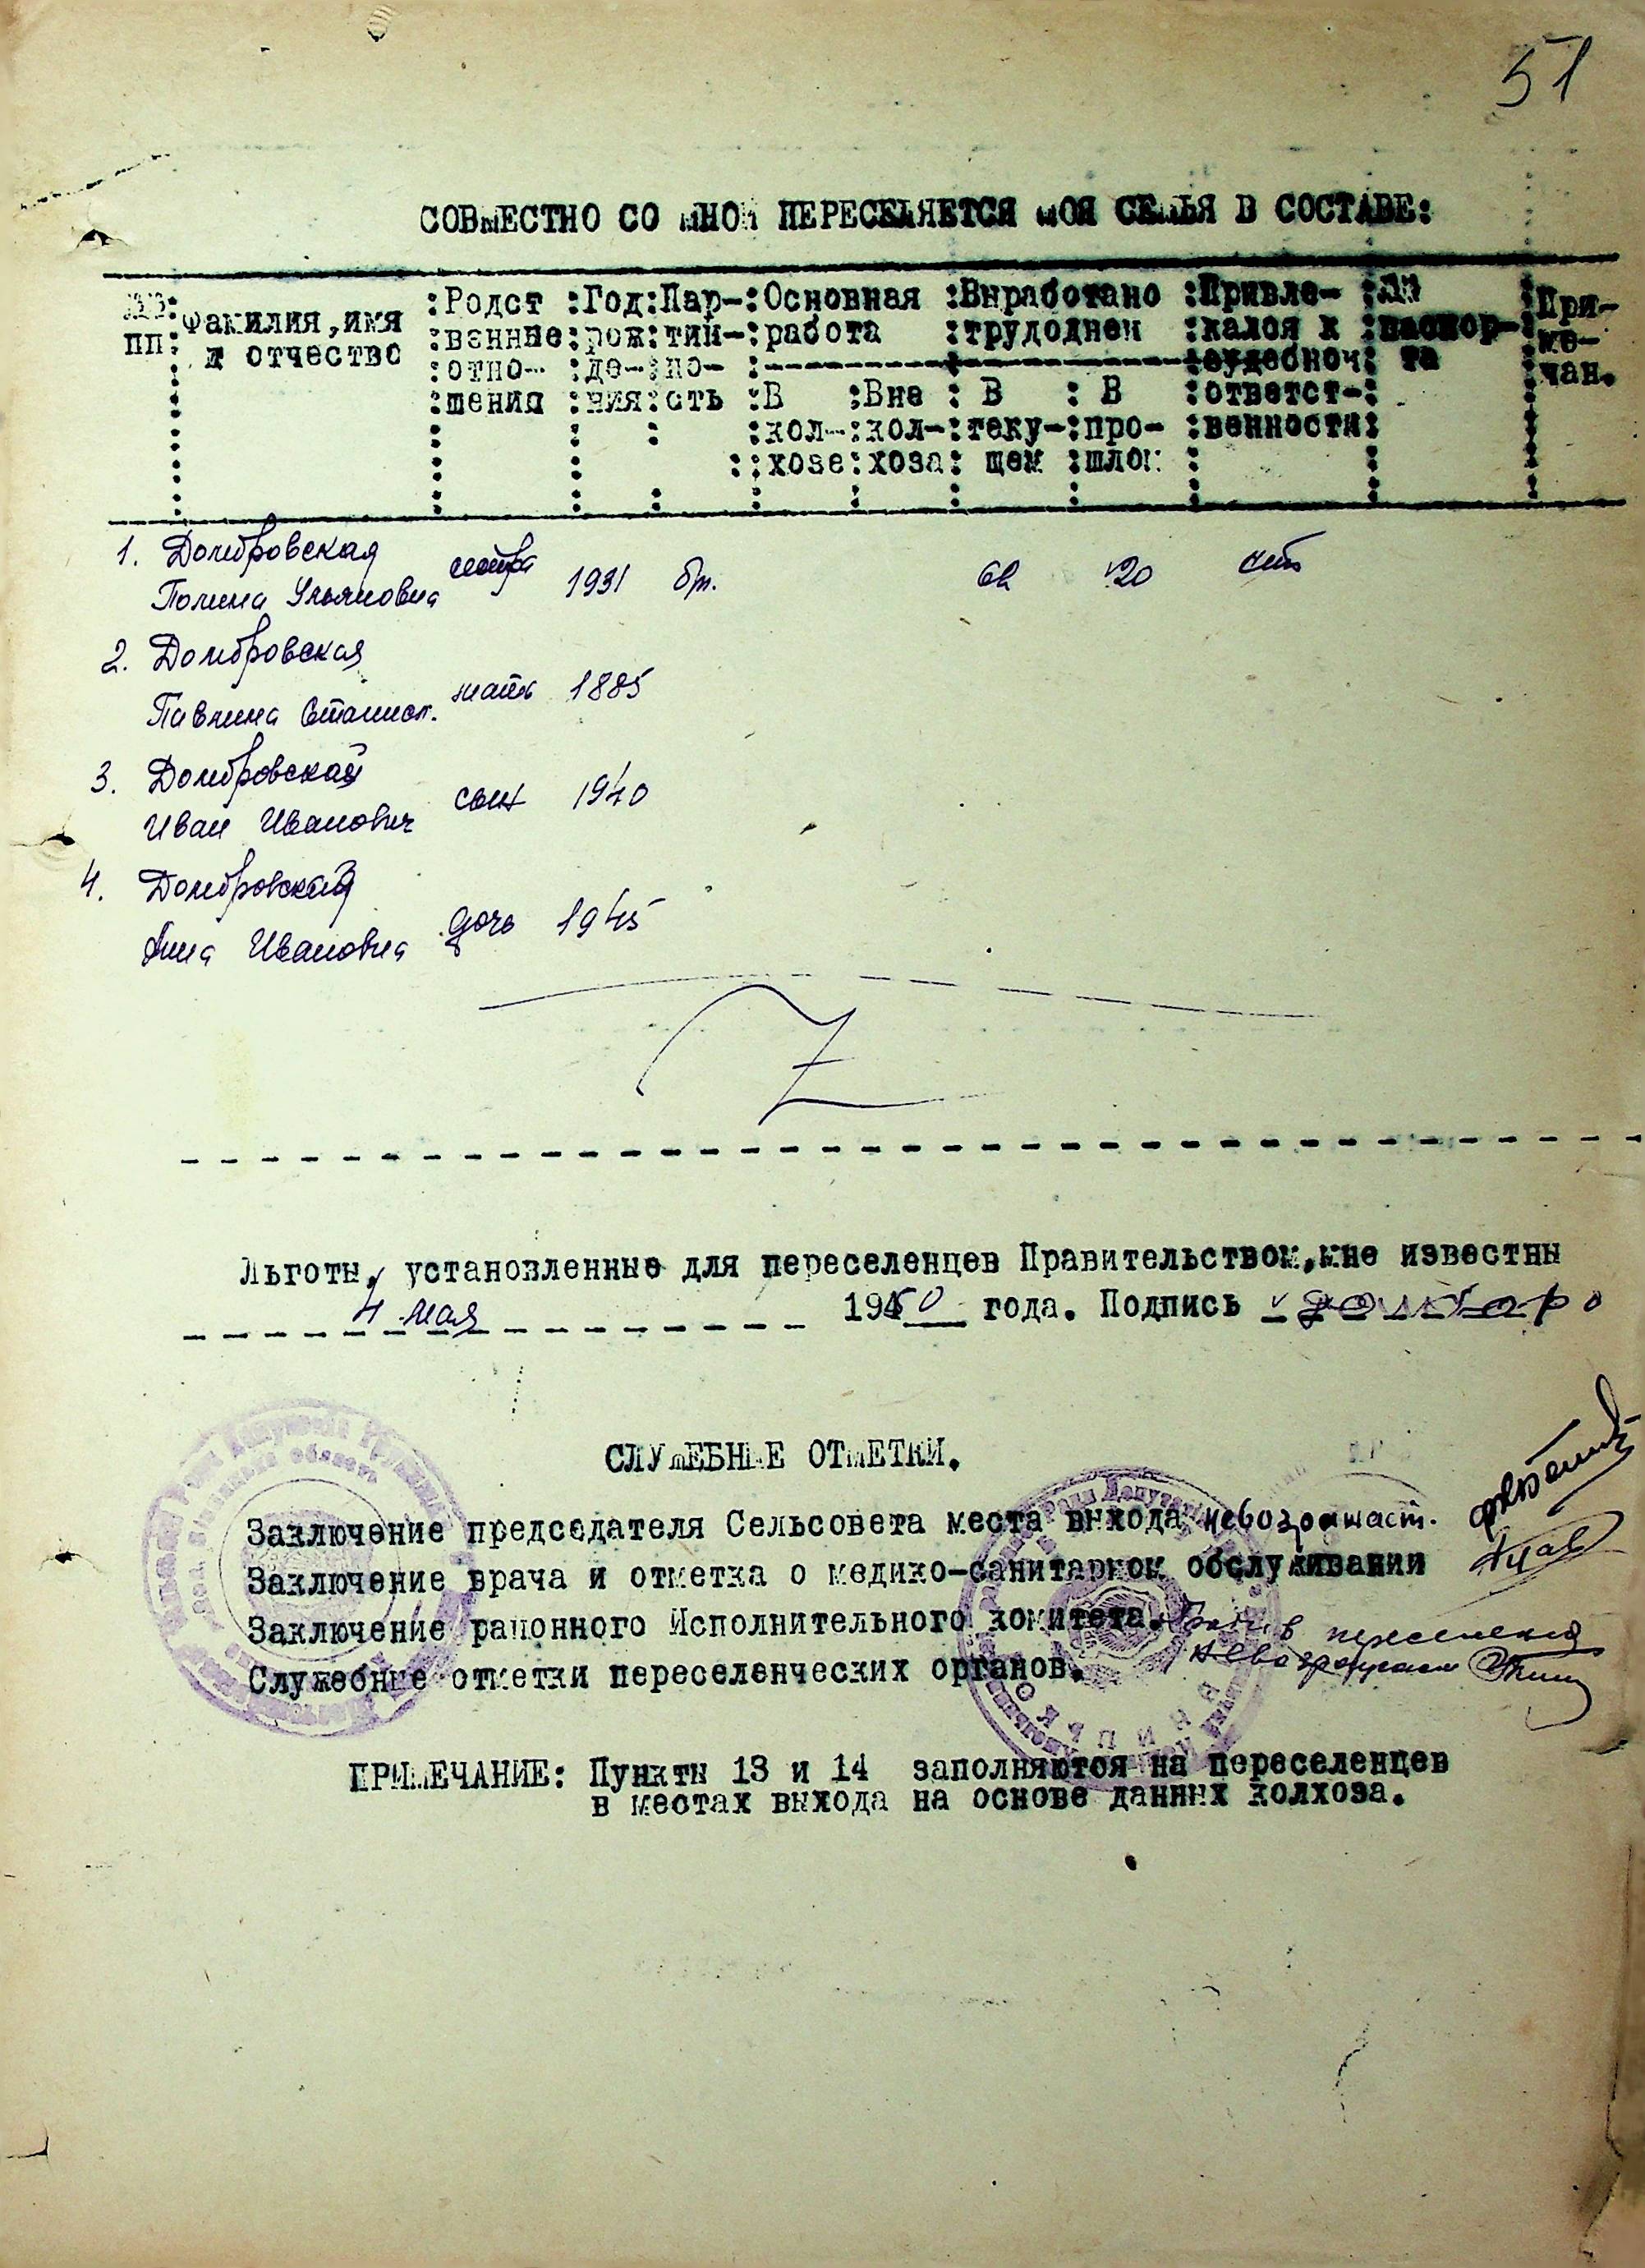 51
СОВМЕСТНО СО МНОЙ ПЕРЕСЕЛЯЕТСЯ МОЯ СЕМЬЯ В СОСТАВЕ:
№№ пп
Фамилия, имя и отчество
Родственные отношения
Год рождения
Партийность
Основная работа
В колхозе
Вне колхоза
Выработано трудодней
В текущем
В прошлом
Привлекался к судебной ответственности
№№ паспорта
Примечан.
1. Домбровская
Полина Ульяновна сестра 1931 бп. 120 нет
2. Домбровская
Павлина Станисл. мать 1885
3. Домбровский
Иван Иванович сын 1940
4. Домбровская
Анна Ивановна дочь 1945
Льготы, установленные для переселенцев Правительством, мне известны
4 мая 1950 года. Подпись
СЛУЖЕБНЫЕ ОТМЕТКИ.
Заключение председателя Сельсовета места выхода невозражает.
Заключение врача и отметка о медико-санитарном обслуживании
Заключение районного Исполнительного комитета.
Служебные отметки переселенческих органов.
переселения
невозражаем
ПРИМЕЧАНИЕ: Пункты 13 и 14 заполняются на переселенцев
в местах выхода на основе данных колхоза.